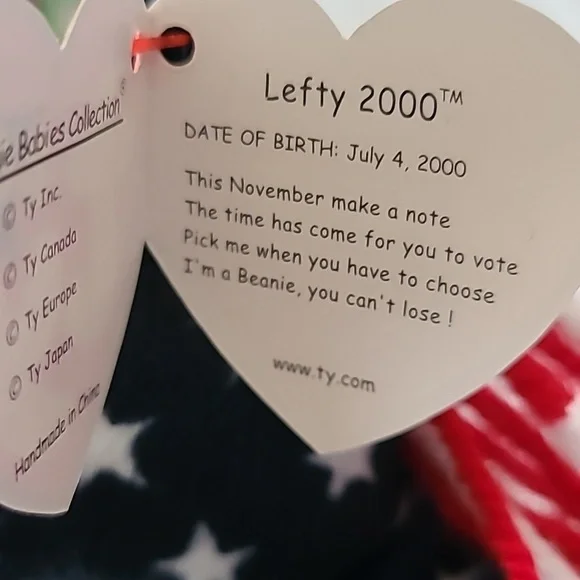 ie Babies Collection®
© Ty Inc.
© Ty Canada
© Ty Europe
© Ty Japan
Handmade in China
Lefty 2000™
DATE OF BIRTH: July 4, 2000
This November make a note
The time has come for you to vote
Pick me when you have to choose
I'm a Beanie, you can't lose !
www.ty.com